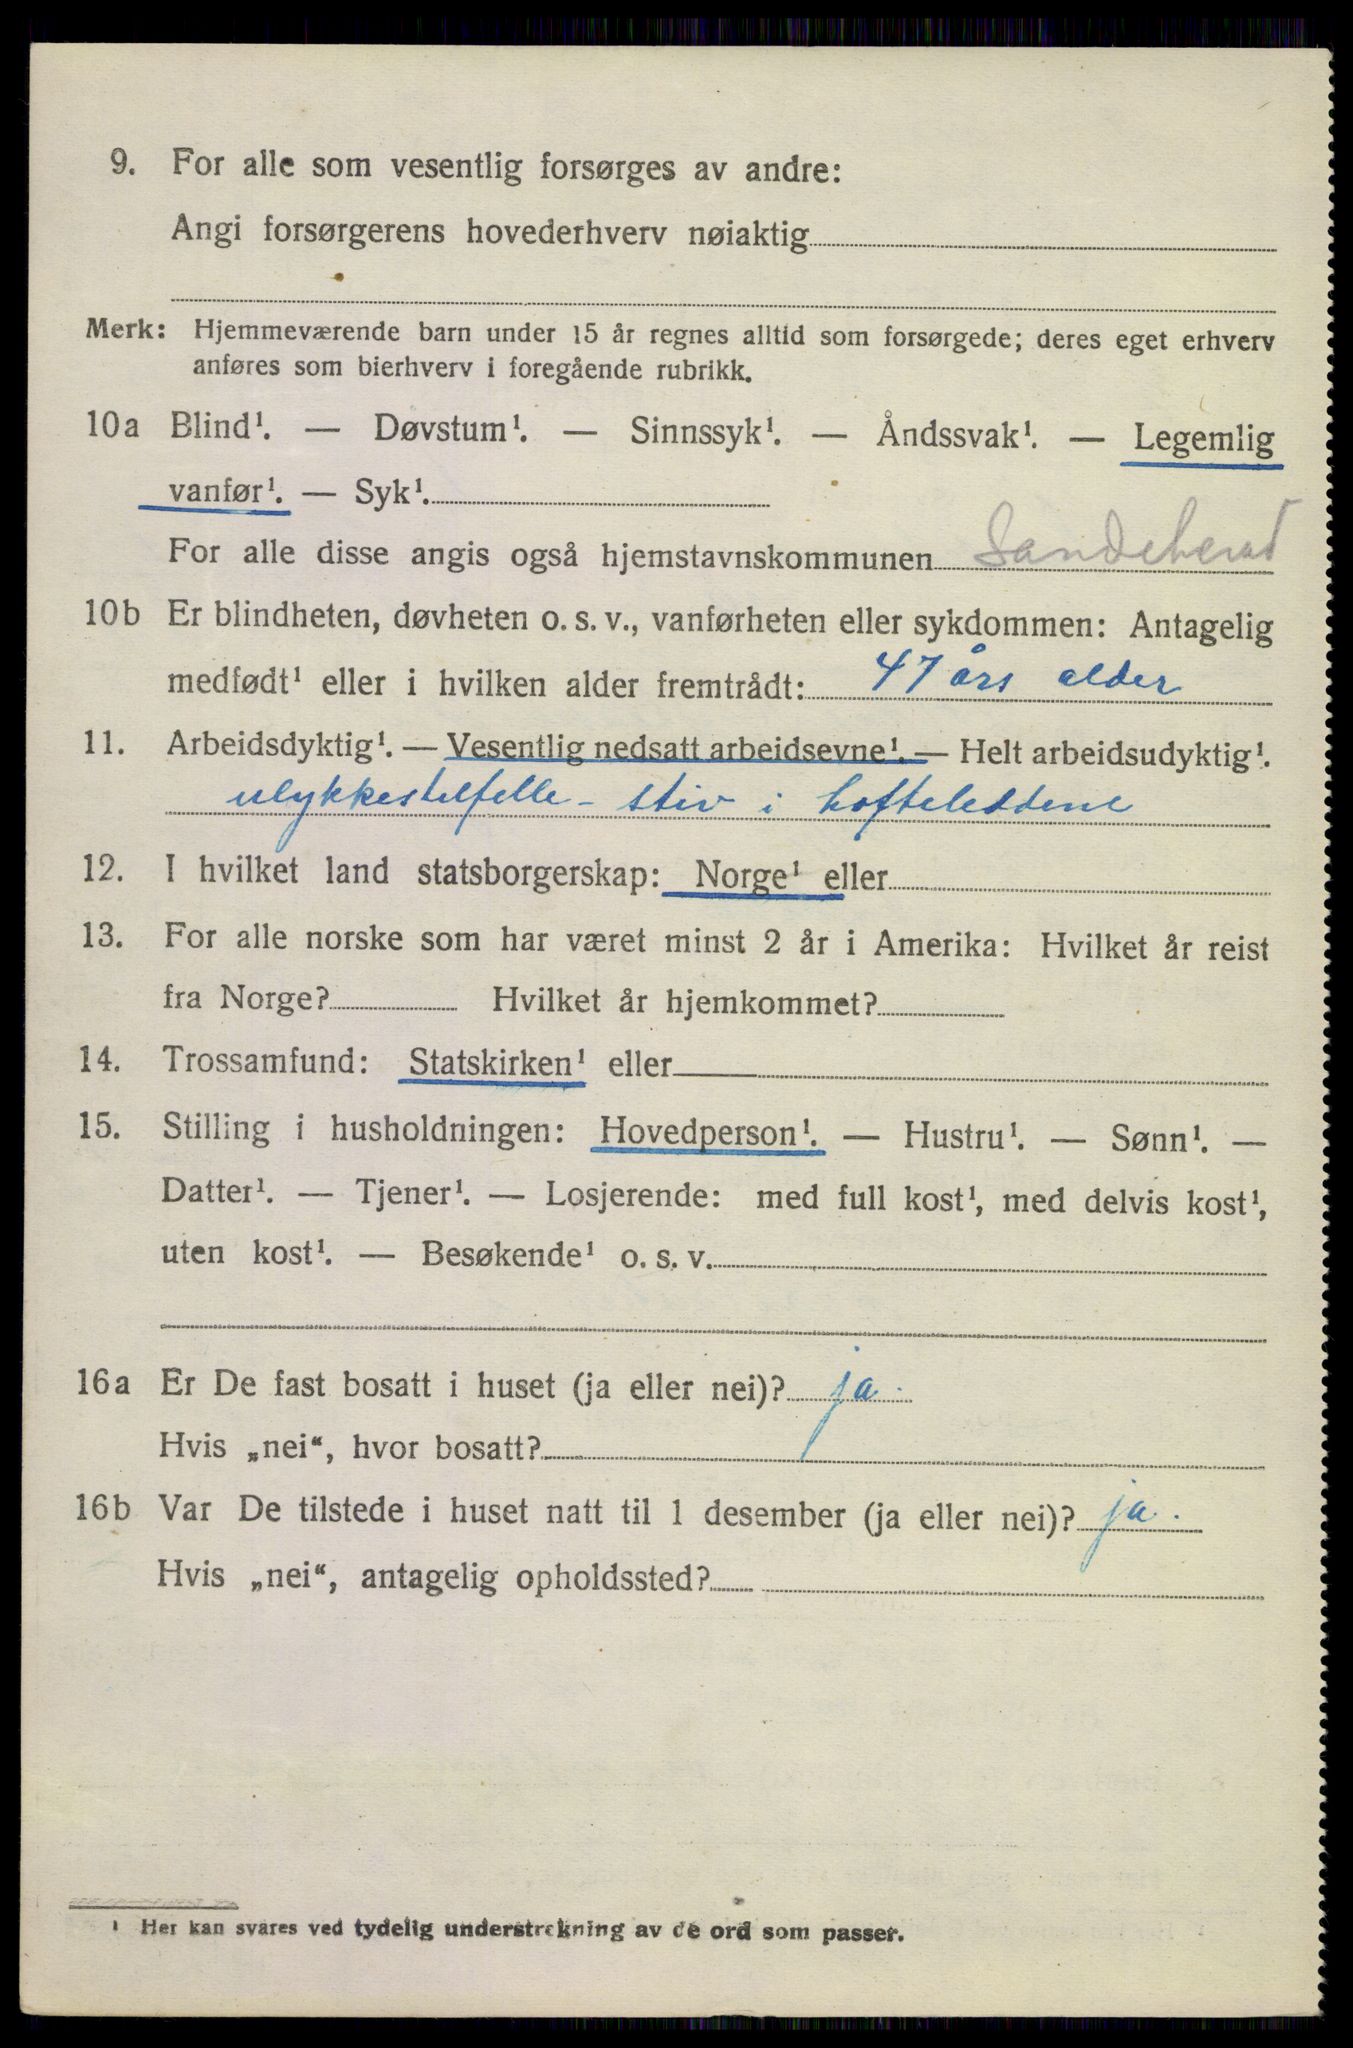 9. For alle som vesentlig forsørges av andre:
Angi forsørgerens hovederhverv nøiaktig
Merk: Hjemmeværende barn under 15 år regnes alltid som forsørgede; deres eget erhverv
anføres som bierhverv i foregående rubrikk.
10a Blind¹. — Døvstum¹. — Sinnssyk¹. — Åndssvak¹. — Legemlig
vanfør¹. — Syk¹.
For alle disse angis også hjemstavnskommunen Sandeherad
10b Er blindheten, døvheten o. s. v., vanførheten eller sykdommen: Antagelig
medfødt¹ eller i hvilken alder fremtrådt: 47 års alder
11. Arbeidsdyktig¹. — Vesentlig nedsatt arbeidsevne¹. — Helt arbeidsudyktig¹.
ulykkestilfelle - stiv i hofteleddene
12. I hvilket land statsborgerskap: Norge¹ eller
13. For alle norske som har været minst 2 år i Amerika: Hvilket år reist
fra Norge? Hvilket år hjemkommet?
14. Trossamfund: Statskirken¹ eller
15. Stilling i husholdningen: Hovedperson¹. — Hustru¹. — Sønn¹. —
Datter¹. — Tjener¹. — Losjerende: med full kost¹, med delvis kost¹,
uten kost¹. — Besøkende¹ o. s. v.
16a Er De fast bosatt i huset (ja eller nei)? ja.
Hvis „nei“, hvor bosatt?
16b Var De tilstede i huset natt til 1 desember (ja eller nei)? ja.
Hvis „nei“, antagelig opholdssted?
¹ Her kan svares ved tydelig understrekning av de ord som passer.